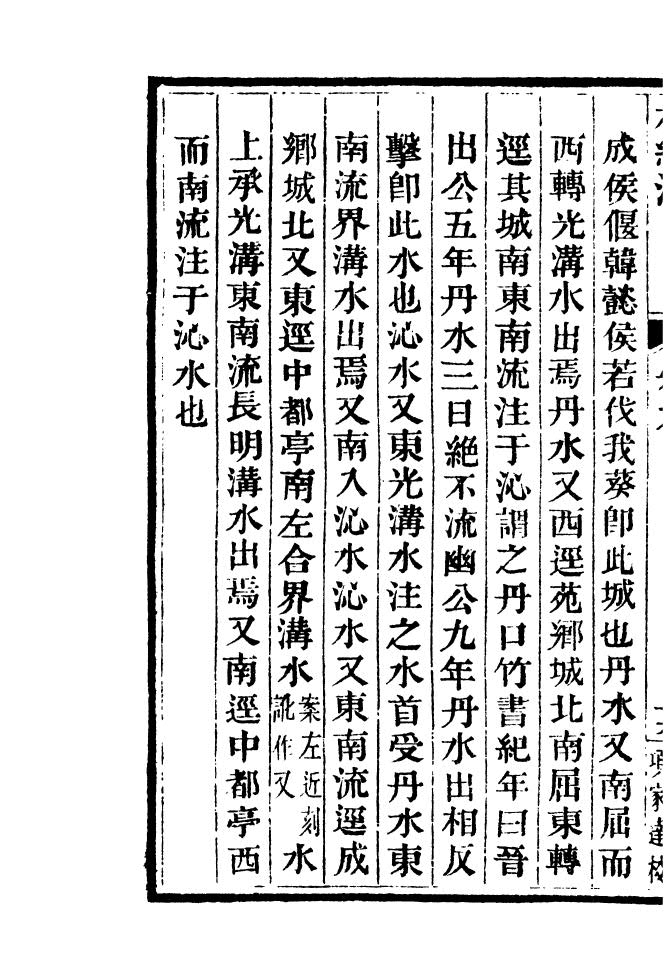 成侯偃韓懿侯若伐我葵卽此城也丹水又南屈而
西轉光溝水出焉丹水又西逕苑鄉城北南屈東轉
逕其城南東南流注于沁謂之丹口竹書紀年曰晉
出公五年丹水三日絕不流幽公九年丹水出相反
擊卽此水也沁水又東光溝水注之水首受丹水東
南流界溝水出焉又南入沁水沁水又東南流逕成
鄉城北又東逕中都亭南左合界溝水案左近刻訛作又水
上承光溝東南流長明溝水出焉又南逕中都亭西
而南流注于沁水也